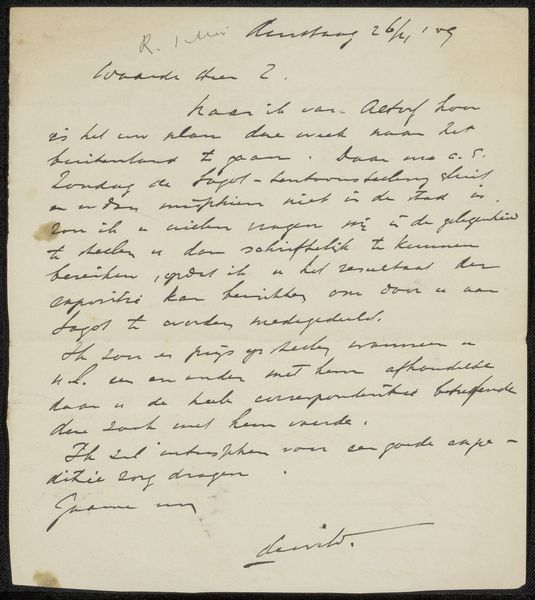 Dinsdag 26/ '09
Waarde Heer Z.
Naar ik van Aetoy hoor
is het uw plan deze week naar het
buitenland te gaan. Daar nu a.s.
Zondag de Lagol-tentoonstelling sluit
en u dan misschien niet in de stad is,
zou ik u willen vragen mij in de gelegenheid
te stellen u dan schriftelijk te kunnen
bereiken, opdat ik u het resultaat der
expositie kan berichten om door u aan
te worden medegedeeld.
Ik zou er prijs op stellen wanneer u
een en ander met hem afhandelde
daar u de heele correspondentie betreffende
deze zaak met hem voerde.
Ik zal intusschen voor een goede expe-
ditie zorg dragen.
Gaarne uw